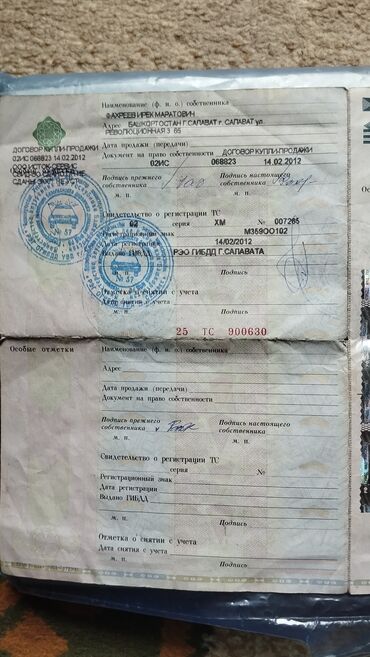 Наименование (ф. и. о.) собственника
ФАХРЕЕВ ИРЕК МАРАТОВИЧ
Адрес БАШКОРТОСТАН Г.САЛАВАТ г. САЛАВАТ ул.
РЕВОЛЮЦИОННАЯ 3 65
Дата продажи (передачи)
Документ на право собственности ДОГОВОР КУПЛИ-ПРОДАЖИ
02ИС 068823 14.02.2012
Подпись прежнего собственника
Подпись настоящего собственника
м. п. м. п.
Свидетельство о регистрации ТС
02 серия ХМ № 007265
Регистрационный знак М359ОО102
Дата регистрации 14/02/2012
Выдано ГИБДД РЭО ГИБДД Г.САЛАВАТА
м. п. Подпись
Отметка о снятии с учета
Дата снятия с учета
м. п. Подпись
25 ТС 900630
ДОГОВОР КУПЛИ-ПРОДАЖИ
02ИС 068823 14.02.2012
ООО ИСТОК-СЕРВИС
Особые отметки
Наименование (ф. и. о.) собственника
Адрес
Дата продажи (передачи)
Документ на право собственности
Подпись прежнего собственника
Подпись настоящего собственника
м. п. м. п.
Свидетельство о регистрации ТС
серия №
Регистрационный знак
Дата регистрации
Выдано ГИБДД
м. п. Подпись
Отметка о снятии с учета
Дата снятия с учета
м. п. Подпись